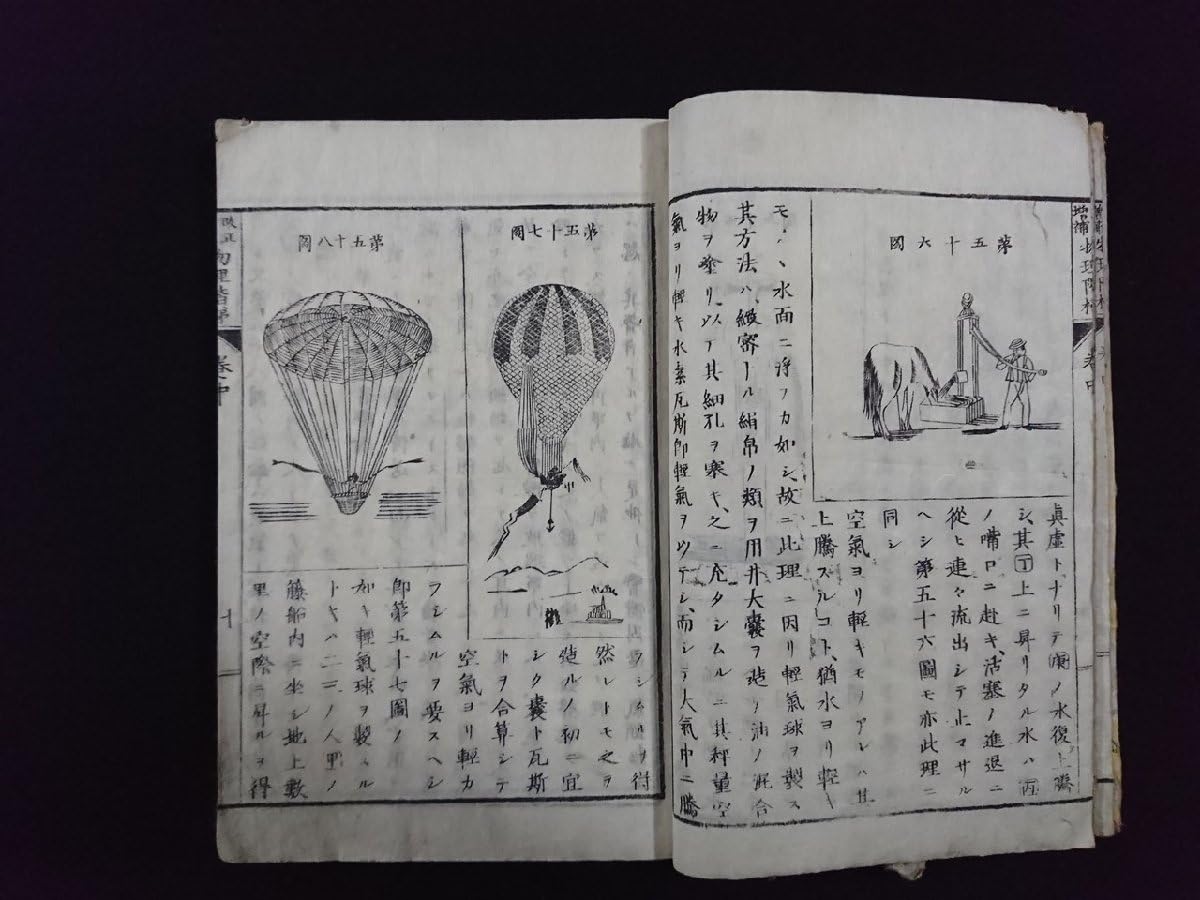 第五十六圖
眞虛トナリテ庚ノ水復上騰
シ、其丁上ニ昇リタル水ハ丙
ノ嘴口ニ赴キ、活塞ノ進退ニ
從ヒ連々流出シテ止マサル
ヘシ第五十六圖モ亦此理ニ
同シ
空氣ヨリ輕キモノアレハ其
上騰スルコト、猶水ヨリ輕キ
モノヽ水面ニ浮フカ如シ、故ニ此理ニ因リ輕氣球ヲ製ス
其方法ハ、緻密ナル絹帛ノ類ヲ用井大囊ヲ造リ油ノ混合
物ヲ塗リ、以テ其細孔ヲ塞キ、之ニ充タシムルニ其秤量空
氣ヨリ輕キ水素瓦斯即輕氣ヲ以テシ、而シテ大氣中ニ騰
第五十七圖
第五十八圖
ラシムルヲ得
然レトモ之ヲ
造ルノ初ニ宜
シク囊ト瓦斯
トヲ合算シテ
空氣ヨリ輕カ
ラシムルヲ要スヘシ
即第五十七圖ノ
如キ輕氣球ヲ製スル
トキハ二三ノ人甲ノ
藤船內ニ坐シ地上數
里ノ空際ニ昇ルヲ得
物理階梯
卷中
十